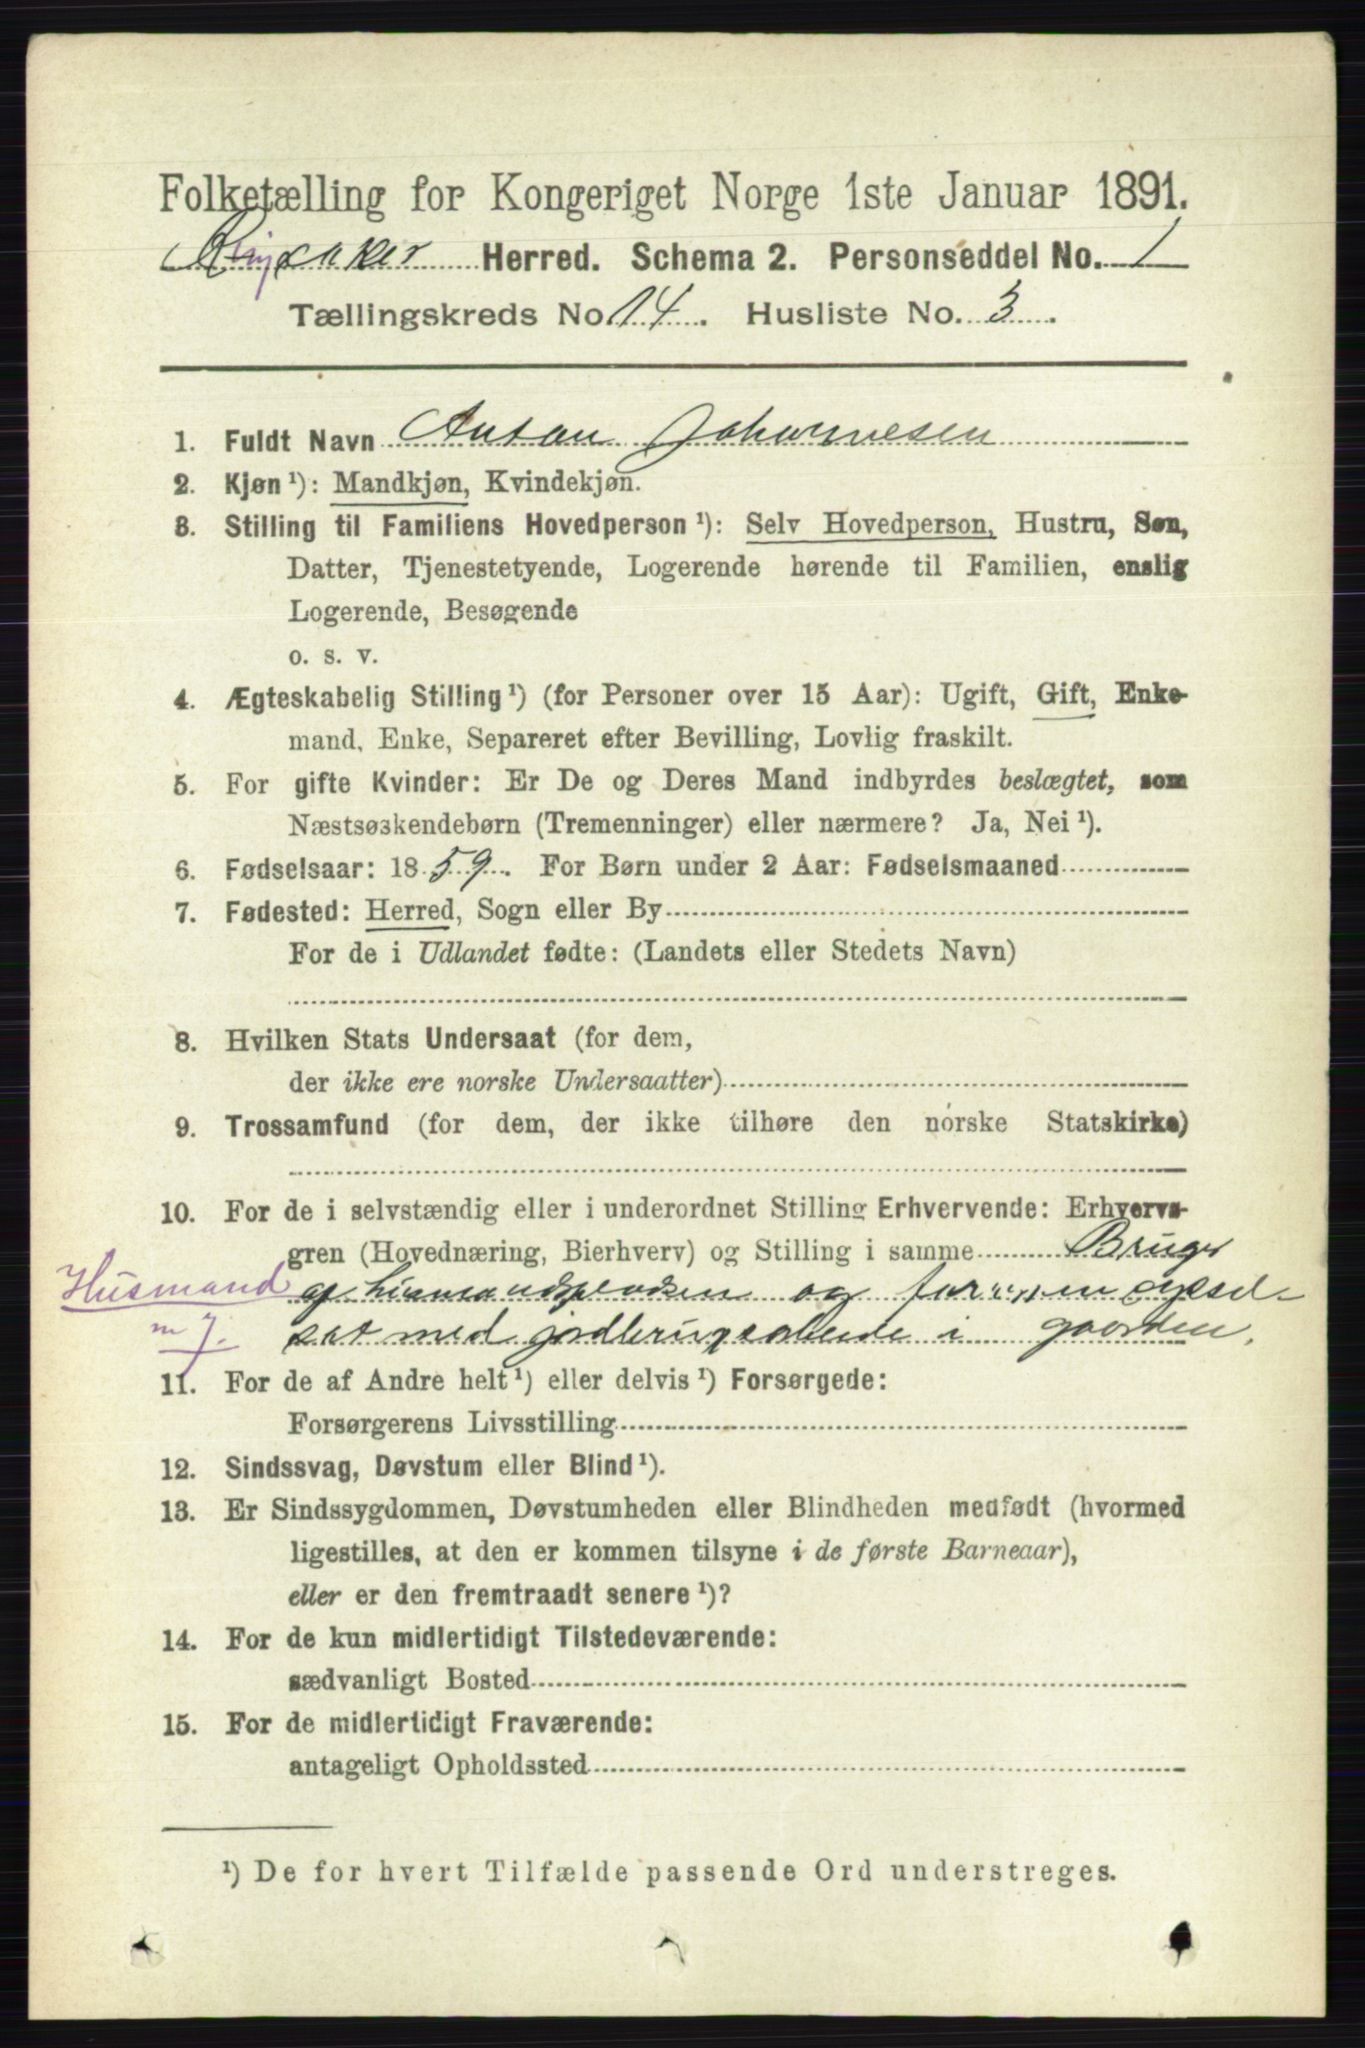 Folketælling for Kongeriget Norge 1ste Januar 1891.
Ringsaker Herred. Schema 2. Personseddel No. 1
Tællingskreds No. 14. Husliste No. 3.
1. Fuldt Navn Anton Johannesen
2. Kjøn ¹): Mandkjøn, Kvindekjøn.
3. Stilling til Familiens Hovedperson ¹): Selv Hovedperson, Hustru, Søn,
Datter, Tjenestetyende, Logerende hørende til Familien, enslig
Logerende, Besøgende
o. s. v.
4. Ægteskabelig Stilling ¹) (for Personer over 15 Aar): Ugift, Gift, Enke-
mand, Enke, Separeret efter Bevilling, Lovlig fraskilt.
5. For gifte Kvinder: Er De og Deres Mand indbyrdes beslægtet, som
Næstsøskendebørn (Tremenninger) eller nærmere? Ja, Nei ¹).
6. Fødselsaar: 1859. For Børn under 2 Aar: Fødselsmaaned
7. Fødested: Herred, Sogn eller By
For de i Udlandet fødte: (Landets eller Stedets Navn)
8. Hvilken Stats Undersaat (for dem,
der ikke ere norske Undersaatter)
9. Trossamfund (for dem, der ikke tilhøre den norske Statskirke)
10. For de i selvstændig eller i underordnet Stilling Erhvervende: Erhvervs-
gren (Hovednæring, Bierhverv) og Stilling i samme Bruger
Husmand af husmandspladsen og forøvrigt sysel-
m J. sat med jordbrugsarbeide i gaarden.
11. For de af Andre helt ¹) eller delvis ¹) Forsørgede:
Forsørgerens Livsstilling
12. Sindssvag, Døvstum eller Blind ¹).
13. Er Sindssygdommen, Døvstumheden eller Blindheden medfødt (hvormed
ligestilles, at den er kommen tilsyne i de første Barneaar),
eller er den fremtraadt senere ¹)?
14. For de kun midlertidigt Tilstedeværende:
sædvanligt Bosted
15. For de midlertidigt Fraværende:
antageligt Opholdssted
¹) De for hvert Tilfælde passende Ord understreges.